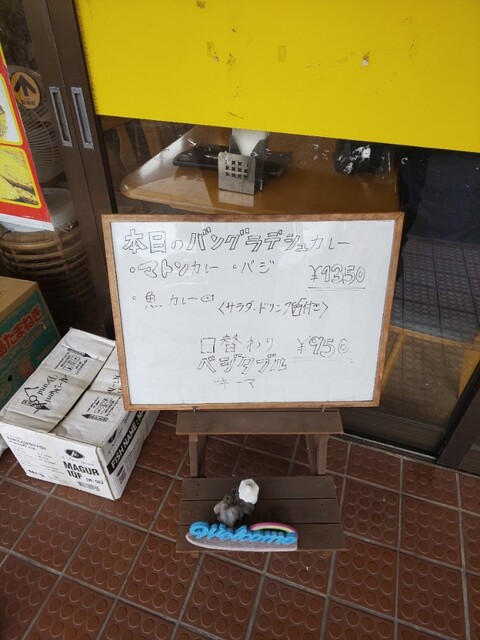 本日のバングラデシュカレー
・マトンカレー ・バジ ¥1350
・魚カレー
〈サラダ、ドリンク付き〉
日替わり ¥950
ベジタブル
キーマ
Welcome
MAGUR